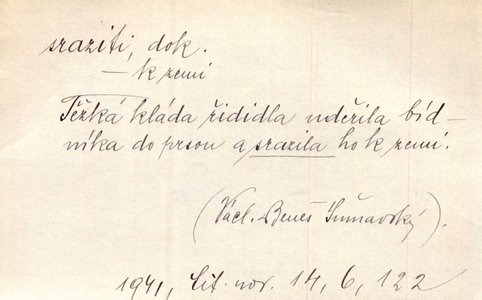 sraziti, dok.
— k zemi
Těžká kláda řididla udeřila bíd-
níka do prsou a srazila ho k zemi.
(Václ. Beneš Šumavský).
1941, lit. nov. 14, 6, 122